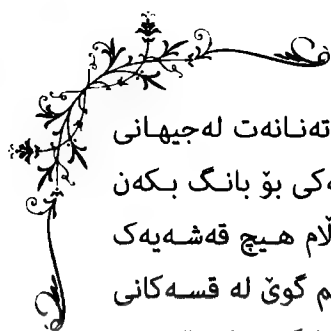 تەنانەت لەجیهانی
ەکی بۆ بانگ بکەن
ڵام هیچ قەشەیەک
م گوێ لە قسەکانی